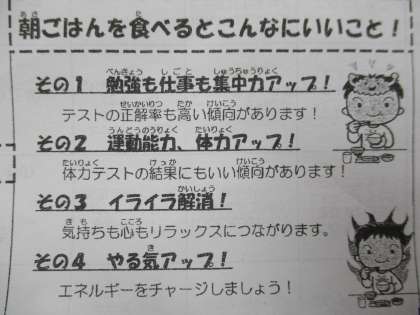 朝ごはんを食べるとこんなにいいこと！
その1 勉強も仕事も集中力アップ！
テストの正解率も高い傾向があります！
その2 運動能力、体力アップ！
体力テストの結果にもいい傾向があります！
その3 イライラ解消！
気持ちも心もリラックスにつながります。
その4 やる気アップ！
エネルギーをチャージしましょう！